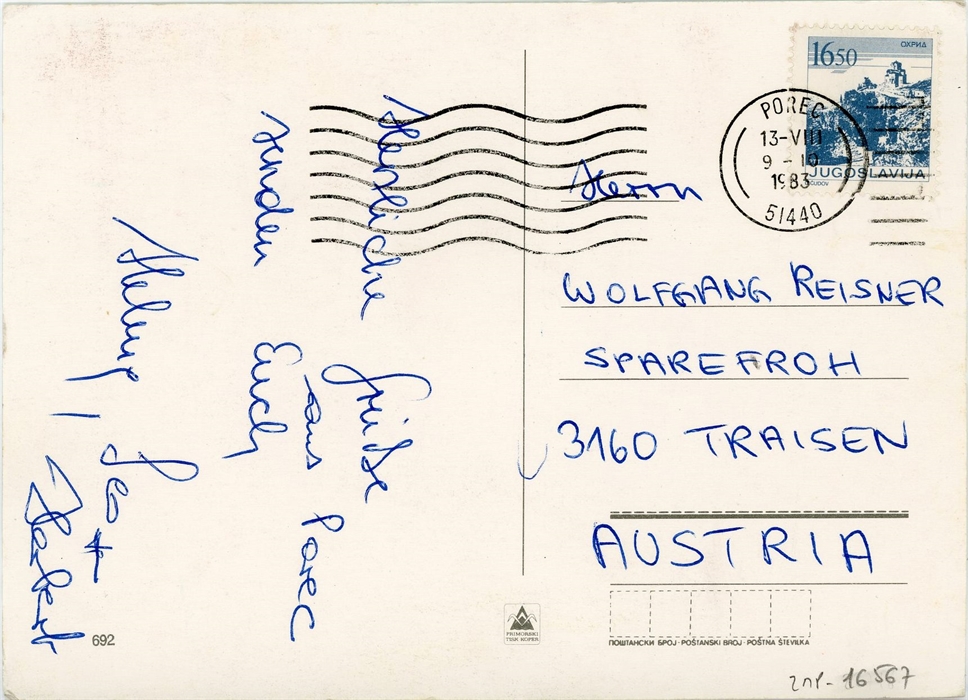 Herzliche Grüße
aus Porec
senden Euch
Helmut,
Herbert
Herrn
WOLFGANG REISNER
SPAREFROH
3160 TRAISEN
AUSTRIA
16 50
ОХРИД
JUGOSLAVIJA
POREČ
13-VIII
9 - 10
1983
51440
692
PRIMORSKI
TISK KOPER
ПОШТАНСКИ БРОЈ · POŠTANSKI BROJ · POŠTNA ŠTEVILKA
16567